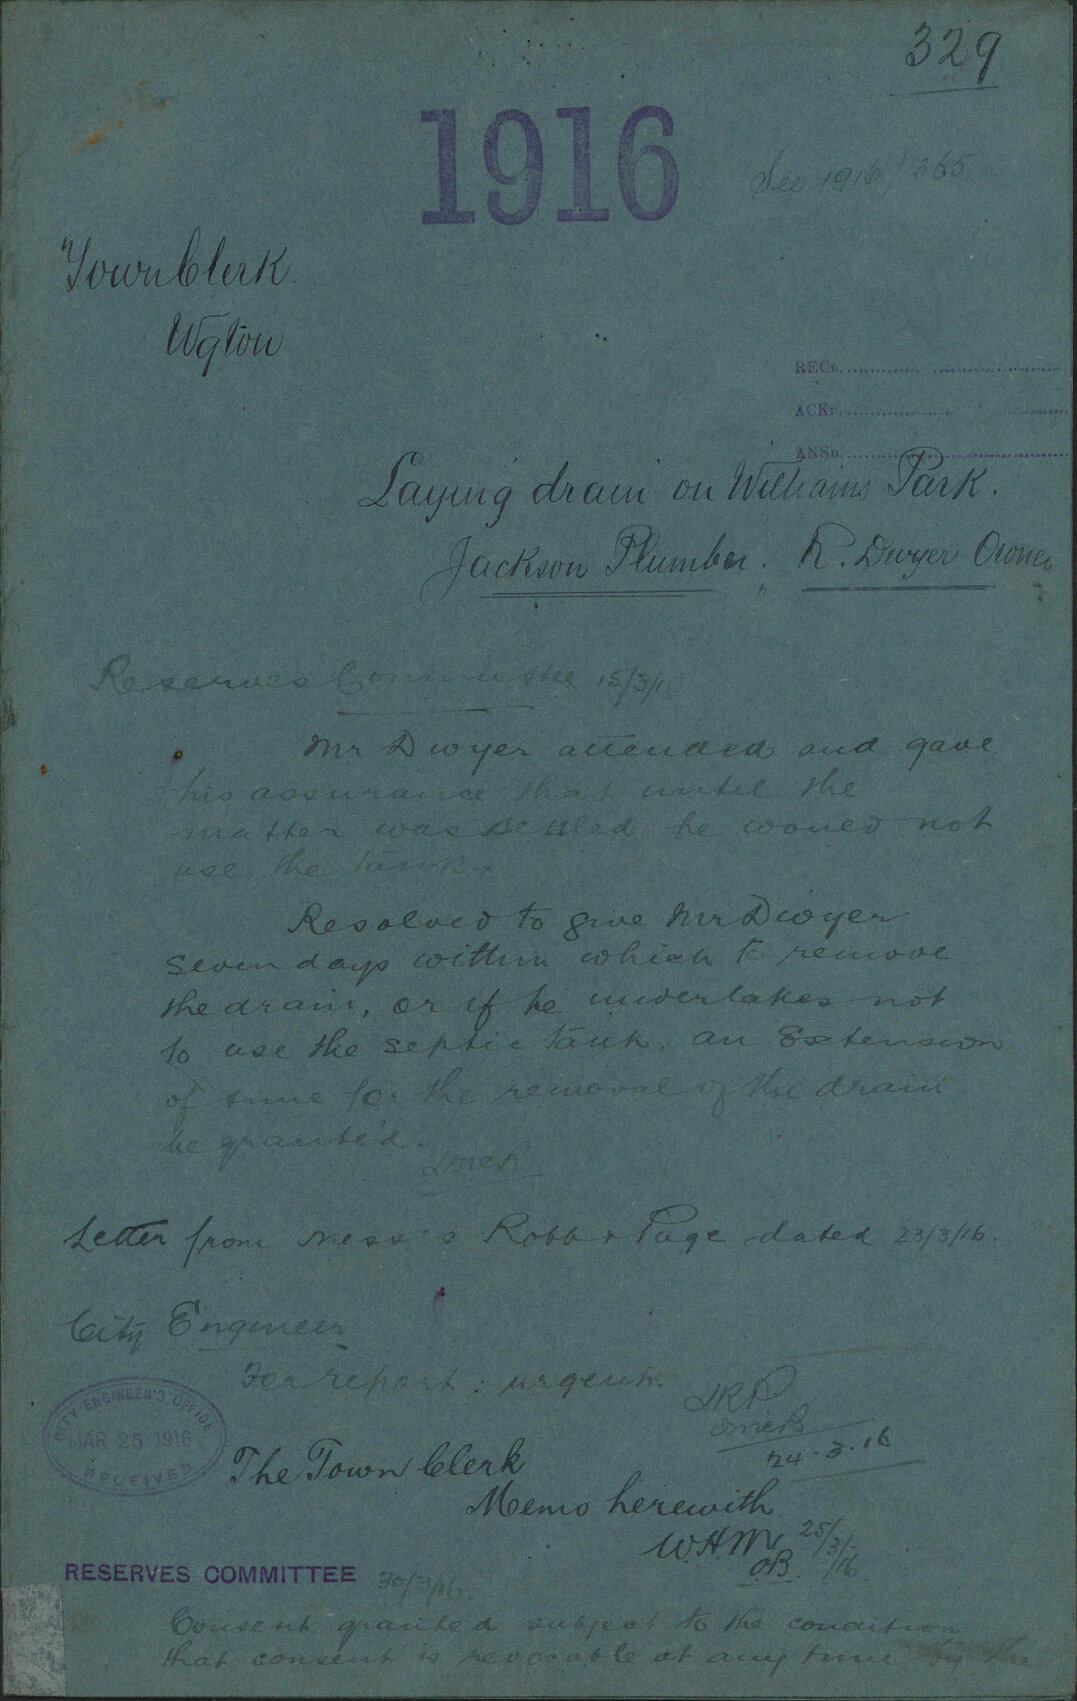 329
1916
See 1916/365
Town Clerk.
Wgton
RECD.
ACKD.
ANSD.
Laying drain on Williams Park.
Jackson Plumber. R. Dwyer Owner
Reserves Committee 15/3/1
Mr Dwyer attended and gave
his assurance that until the
matter was settled he would not
use the tank.
Resolved to give Mr Dwyer
seven days within which to remove
the drain, or if he undertakes not
to use the septic tank, an Extension
of time for the removal of the drain
be granted.
Letter from Mess s Robb & Page dated 23/3/16.
City Engineer
For report: urgent.
JRP
24.3.16
CITY ENGINEER'S OFFICE
MAR 25 1916
RECEIVED
The Town Clerk
Memo herewith
WHM 25/3/16
OB
RESERVES COMMITTEE 30/3/16
Consent granted subject to the condition
that consent is revocable at any time by the